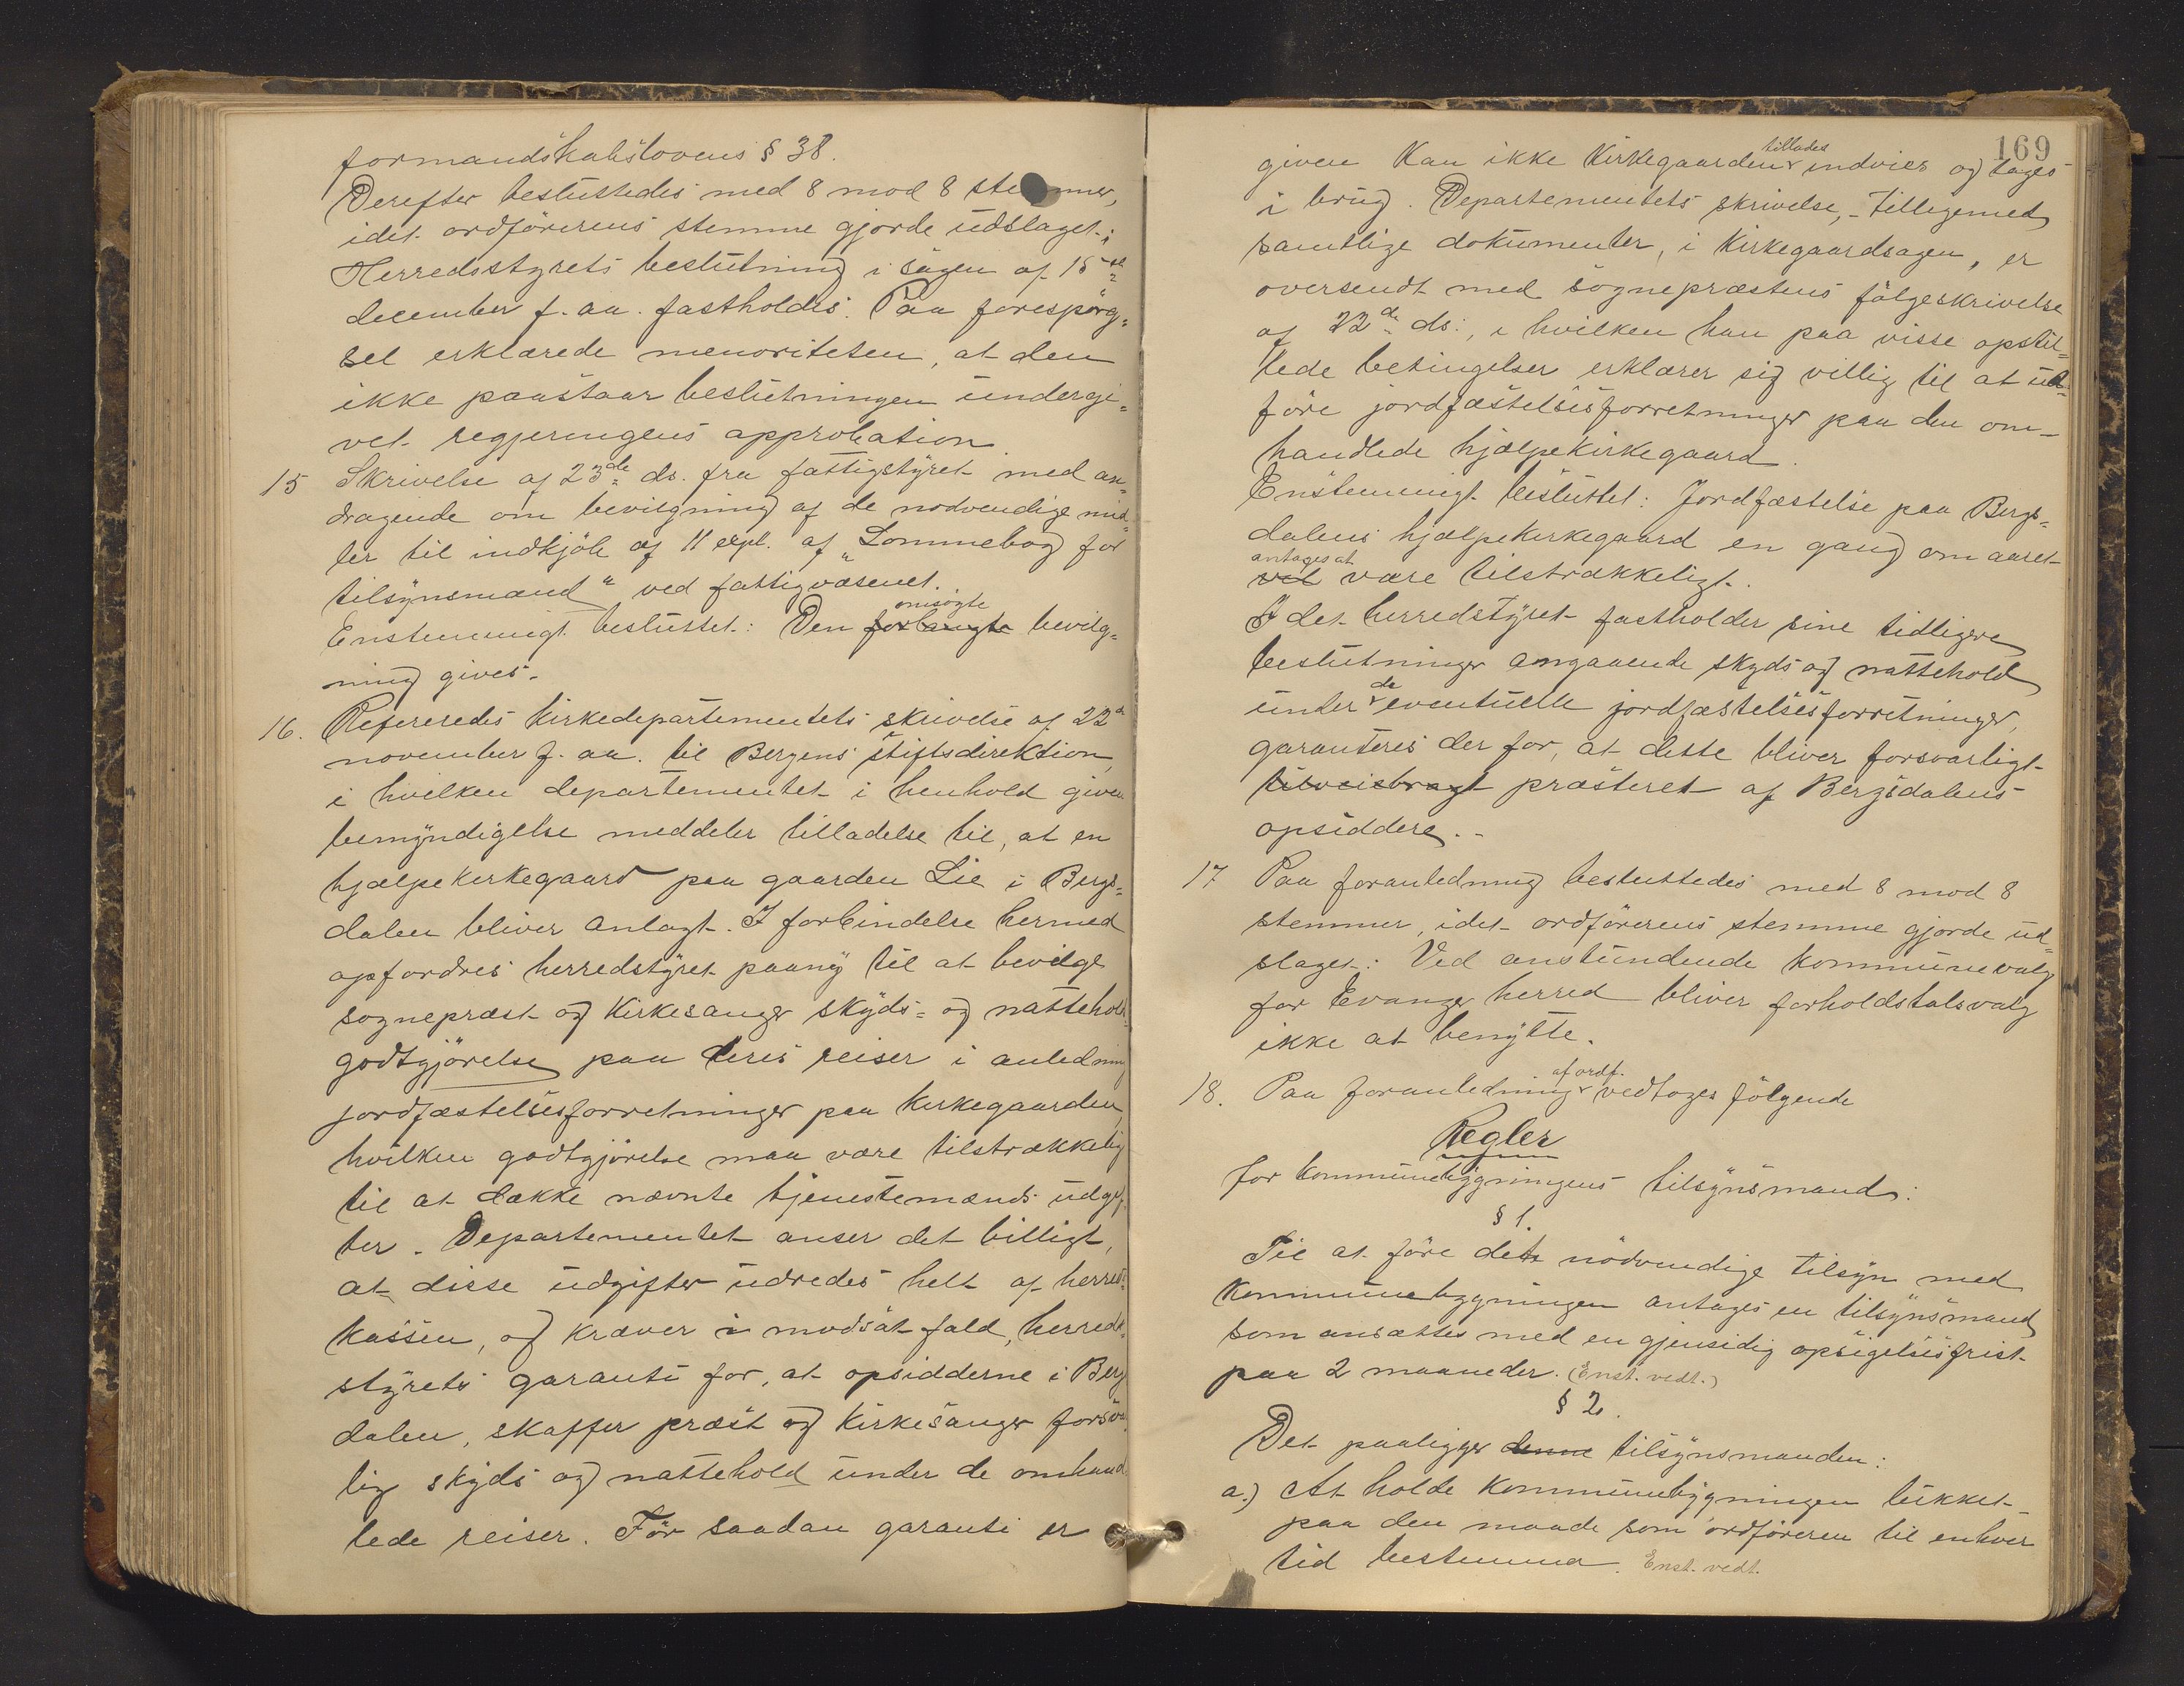 formandskabslovens § 38.
Derefter besluttedes med 8 mod 8 stemmer,
idet ordförerens stemme gjorde udslaget:
Herredsstyrets beslutning i sagen af 15de
december f. aa. fastholdes. Paa forespörg-
sel erklærede menoriteten, at den
ikke paastaar beslutningen undergi-
vet regjeringens approbation
15 Skrivelse af 23de ds. fra fattigstyret med an-
dragende om bevilgning af de nodvendige mid-
ler til indkjöb af 11 expl. af "Lommebog for
tilsynsmænd" ved fattigvæsenet.
omsögte
Enstemmigt besluttet: Den forlangte bevilg-
ning gives.
16. Refereredes kirkedepartementets skrivelse af 22de
november f. aa. til Bergens stiftsdirektion,
i hvilken departementet i henhold given
bemyndigelse meddeler tilladelse til, at en
hjælpekirkegaard paa gaarden Lie i Bergs-
dalen bliver anlagt. I forbindelse hermed
opfordres herredstyret paany til at bevilge
sognepræst og kirkesanger skyds- og nattehold-
godtgjörelse paa deres reiser i anledning
jordfæstelsesforretninger paa kirkegaarden,
hvilken godtgjörelse maa være tilstrækkelig
til at dække nævnte tjenestemænds udgif-
ter. Departementet anser det billigt,
at disse udgifter udredes helt af herreds-
kassen, og kræver i modsat fald, herreds-
styrets garanti for, at opsidderne i Bergs
dalen, skaffer præst og kirkesanger forsvar
lig skyds og nattehold under de omhand
lede reiser. Før saadan garanti er
169
tillades
given kan ikke kirkegaarden indvies og tages
i brug. Departementets skrivelse, tilligemed
samtlige dokumenter, i kirkegaardsagen, er
oversendt med sognepræstens fölgeskrivelse
af 22de ds., i hvilken han paa visse opstil-
lede betingelser erklærer sig villig til at ud-
före jordfæstelsesforretninger paa den om-
handlede hjælpekirkegaard.
Enstemmigt besluttet: Jordfæstelse paa Bergs-
dalens hjælpekirkegaard en gang om aaret
antages at
vil være tilstrækkeligt.
I det herredstyret fastholder sine tidligere
beslutninger angaaende skyds og nattehold
de
under eventuelle jordfæstelsesforretninger,
garanteres der for, at dette bliver forsvarligt
tilveiebragt præsteret af Bergsdalens
opsiddere.
17 Paa foranledning besluttedes med 8 mod 8
stemmer, idet ordförerens stemme gjorde ud-
slaget: Ved anstundende kommunevalg
for Evanger herred bliver forholdstalsvalg
ikke at benytte.
af ordf.
18. Paa foranledning vedtoges fölgende
Regler
for kommunebygningens tilsynsmand:
§ 1.
Til at före det nödvendige tilsyn med
kommunebygningen antages en tilsynsmand
som ansættes med en gjensidig opsigelsesfrist
paa 2 maaneder. (Enst. vedt.)
§ 2.
Det paaligger denne tilsynsmanden:
a.) At holde kommunebygningen lukket
paa den maade som ordföreren til enhver
tid bestemmer. Enst. vedt.